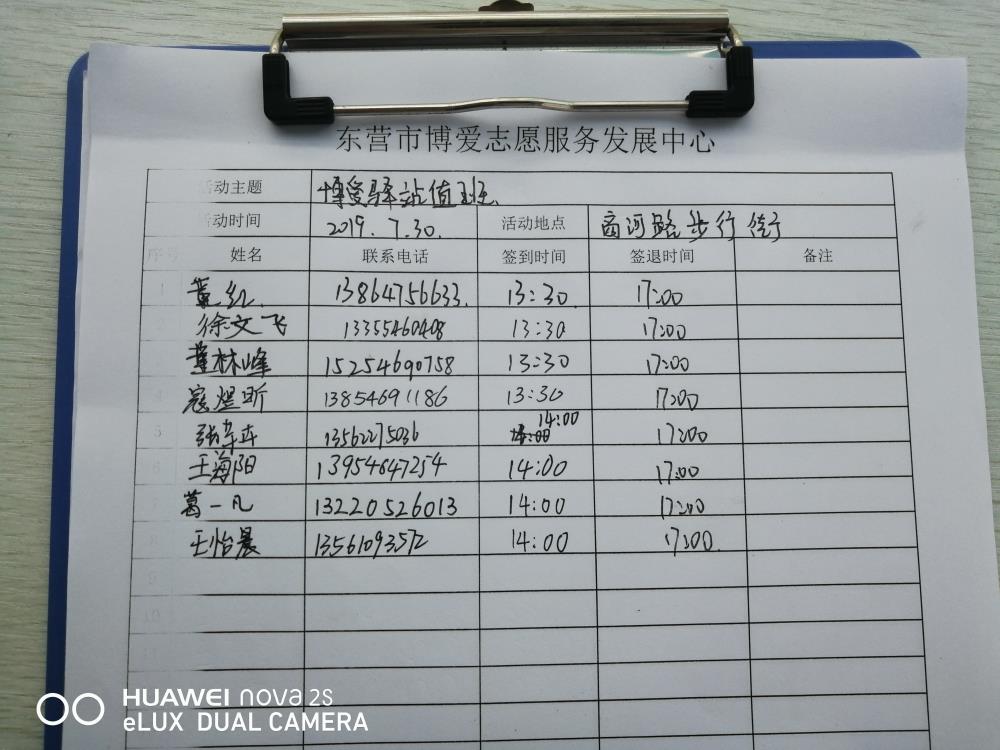 东营市博爱志愿服务发展中心
活动主题 博爱驿站值班
活动时间 2019.7.30. 活动地点 商河路步行街
序号 姓名 联系电话 签到时间 签退时间 备注
1 红 13864756633 13:30 17:00
2 徐文飞 13355460408 13:30 17:00
林峰 15254690758 13:30 17:00
4 寇煜昕 13854691186 13:30 17:00
5 张 13562275036 14:00 17:00
6 王海阳 13954647254 14:00 17:00
7 葛一凡 13220526013 14:00 17:00
8 王怡晨 13561093572 14:00 17:00
9
10
11
HUAWEI nova 2s
eLUX DUAL CAMERA